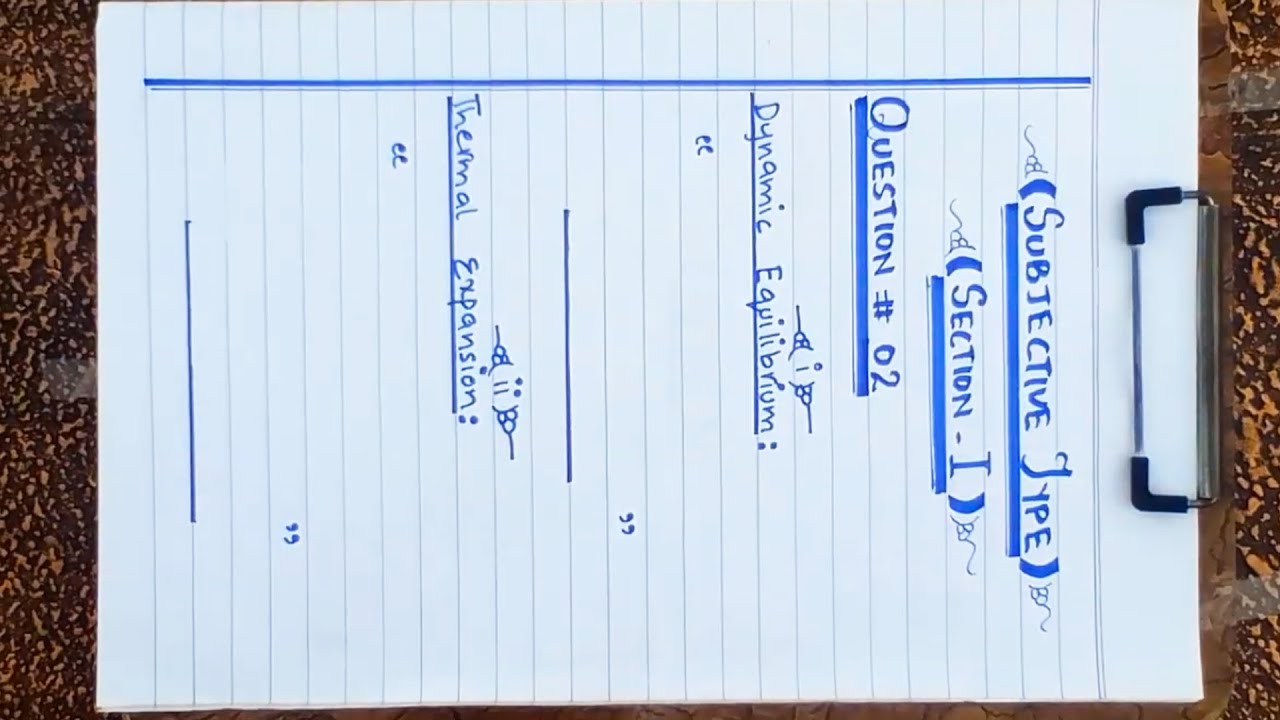 (SUBJECTIVE TYPE)
(SECTION - I)
QUESTION # 02
(i)
Dynamic Equilibrium:
"
"
(ii)
Thermal Expansion:
"
"